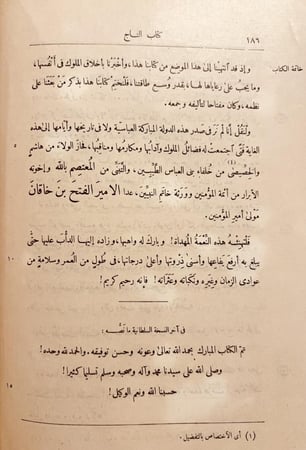 ١٨٦ كتاب التـــاج
خاتمة الكتاب
وإذ قد آنتهينا إلى هذا الموضع من كتابنا هذا، وأخبرنا بأخلاق الملوك فى أنفسها،
وما يجب على رعاياها لهـا، بقدر وُسع طاقتنا، فلنختِم كتابَنا هذا بذكر مَنْ بعثنا على
نظمه، وكان مِفتاحا لتأليفه وجمعه.
ولنقُلْ إنّا لم نَر فى صدر هذه الدولة المباركة العباسيَّة ولا فى تاريخها وأيامها إلى هذه
الغاية فتًى آجتمعت له فضائل الملوك وآدابُها ومكارمُها ومناقبُها، فحاز الولاء من هاشم
والخِصّيصى(١) من خلفاء بنى العباس الطيِّبــين، والتبنّى من المعتصم بالله وإخوته
الأبرار من أئمة المؤمنين وورثة خاتم النبيين، عدا الأمير الفتح بن خاقان
مَوْلى أمير المؤمنين.
فلتَهنِئْــه هذه النِّعْمَةُ المُهداة! وبارك له واهبها، وزاده إليهـا الدأبَ عليها حتَّى
١٠ يبلغ به أرفعَ يَفاعِها وأسنى ذِروتها وأعلى درجاتها، فى طُول من العُمر وسلامةٍ من
عوادى الزمان وغِيَرِه ونكباتِه وعثَراته! فإنه رحيم كريم!
فى آخر النسخة السلطانية ما نصّــه :
تم الكتاب المبارك بحمد الله تعالى وعونه وحسن توفيقه. والحمد لله وحده!
وصلى الله على سيدنا محمد وآله وصحبه وسلم تسليما كثيرا!
١٥ حسبنا الله ونعم الوكيل!
(١) أى الآختصاص بالتفضيل.